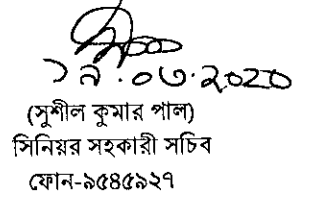 ১৯.০৩.২০২০
(সুশীল কুমার পাল)
সিনিয়র সহকারী সচিব
ফোন-৯৫৪৫৯২৭